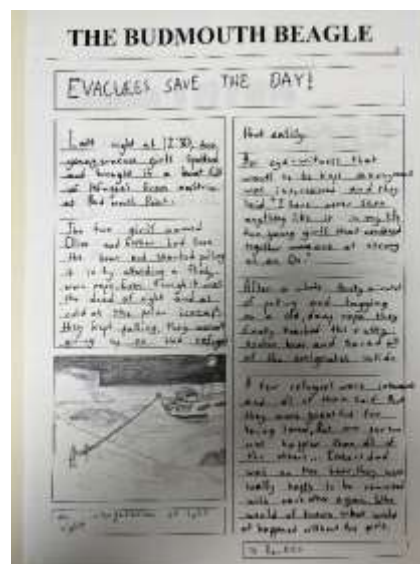 THE BUDMOUTH BEAGLE
EVACUEES SAVE THE DAY!
Last night at 12:30, two
young evacuee girls spotted
and brought in a boat full
of refugees from
at Bud mouth Point.
The two girls named
Olive and Esther had seen
the boat and started pulling
it in by attaching a
rope. Even though it was
the dead of night and as
cold as the polar icecaps,
they kept pulling, they weren't
giving up so
night
that easily.
An eye-witness that
wants to be kept anonymous
was interviewed and they
said "I have never seen
anything like it in my life
two young girls that worked
together were as strong
as an Ox."
After a whole
of pulling and tugging
on a old, rope they
finally reached the
boat and saved all
of the inside.
A few refugees were
and all of them said that
they were grateful for
being saved, but one person
was happier than all of
the others... Esther's dad
was on the boat, they were
really happy to be reunited
with each other again,
world of knows what would
of happened without the girls.